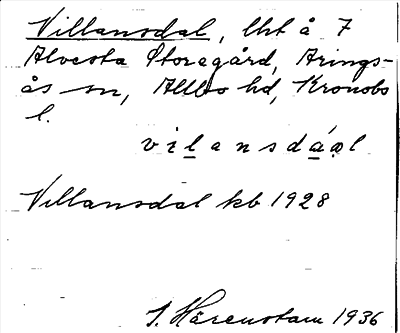 Villansdal, lht å 7
Alvesta Storegård, Arings-
ås sn, Allbo hd, Kronobs
l.
vilansdáal
Villansdal kb 1928
S. Härenstam 1936